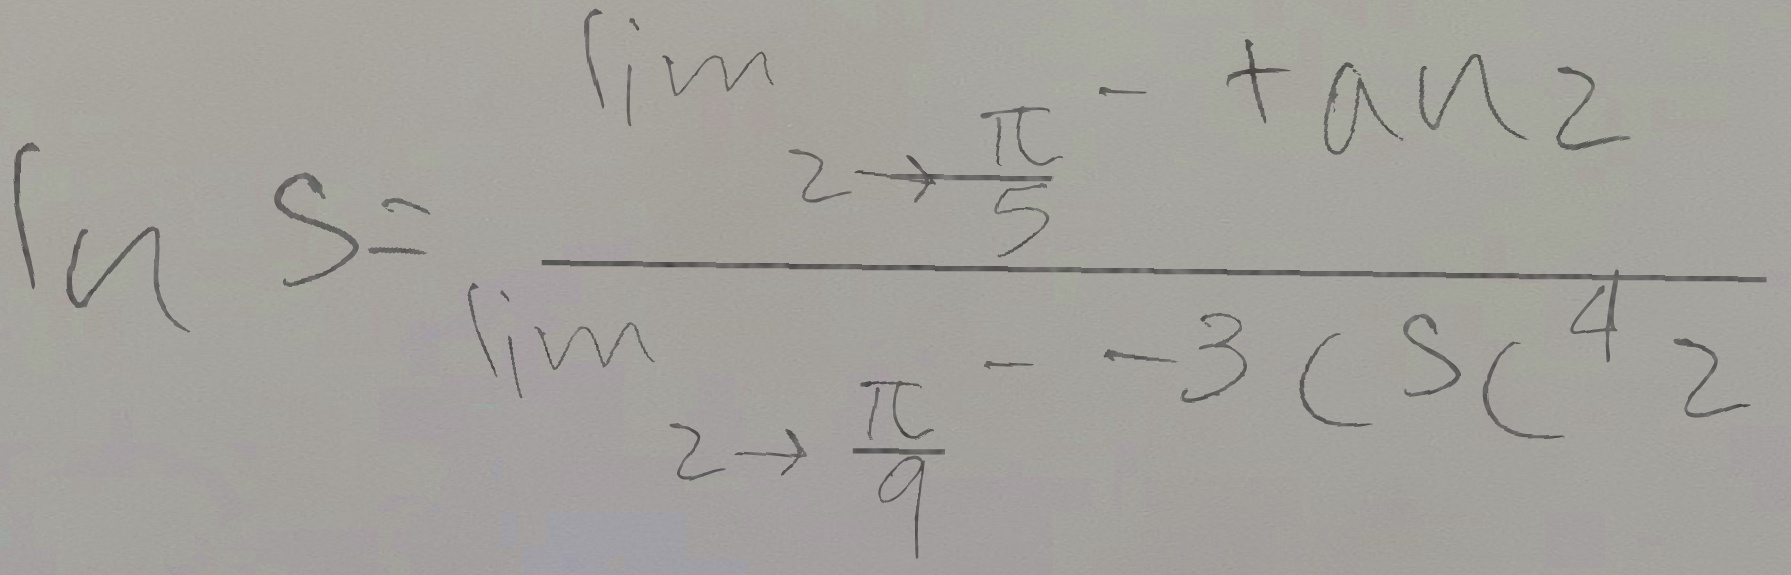 \ln S = \frac{\lim_{z \to \frac{\pi}{5}^-} \tan z}{\lim_{z \to \frac{\pi}{9}^-} -3 \csc^4 z}